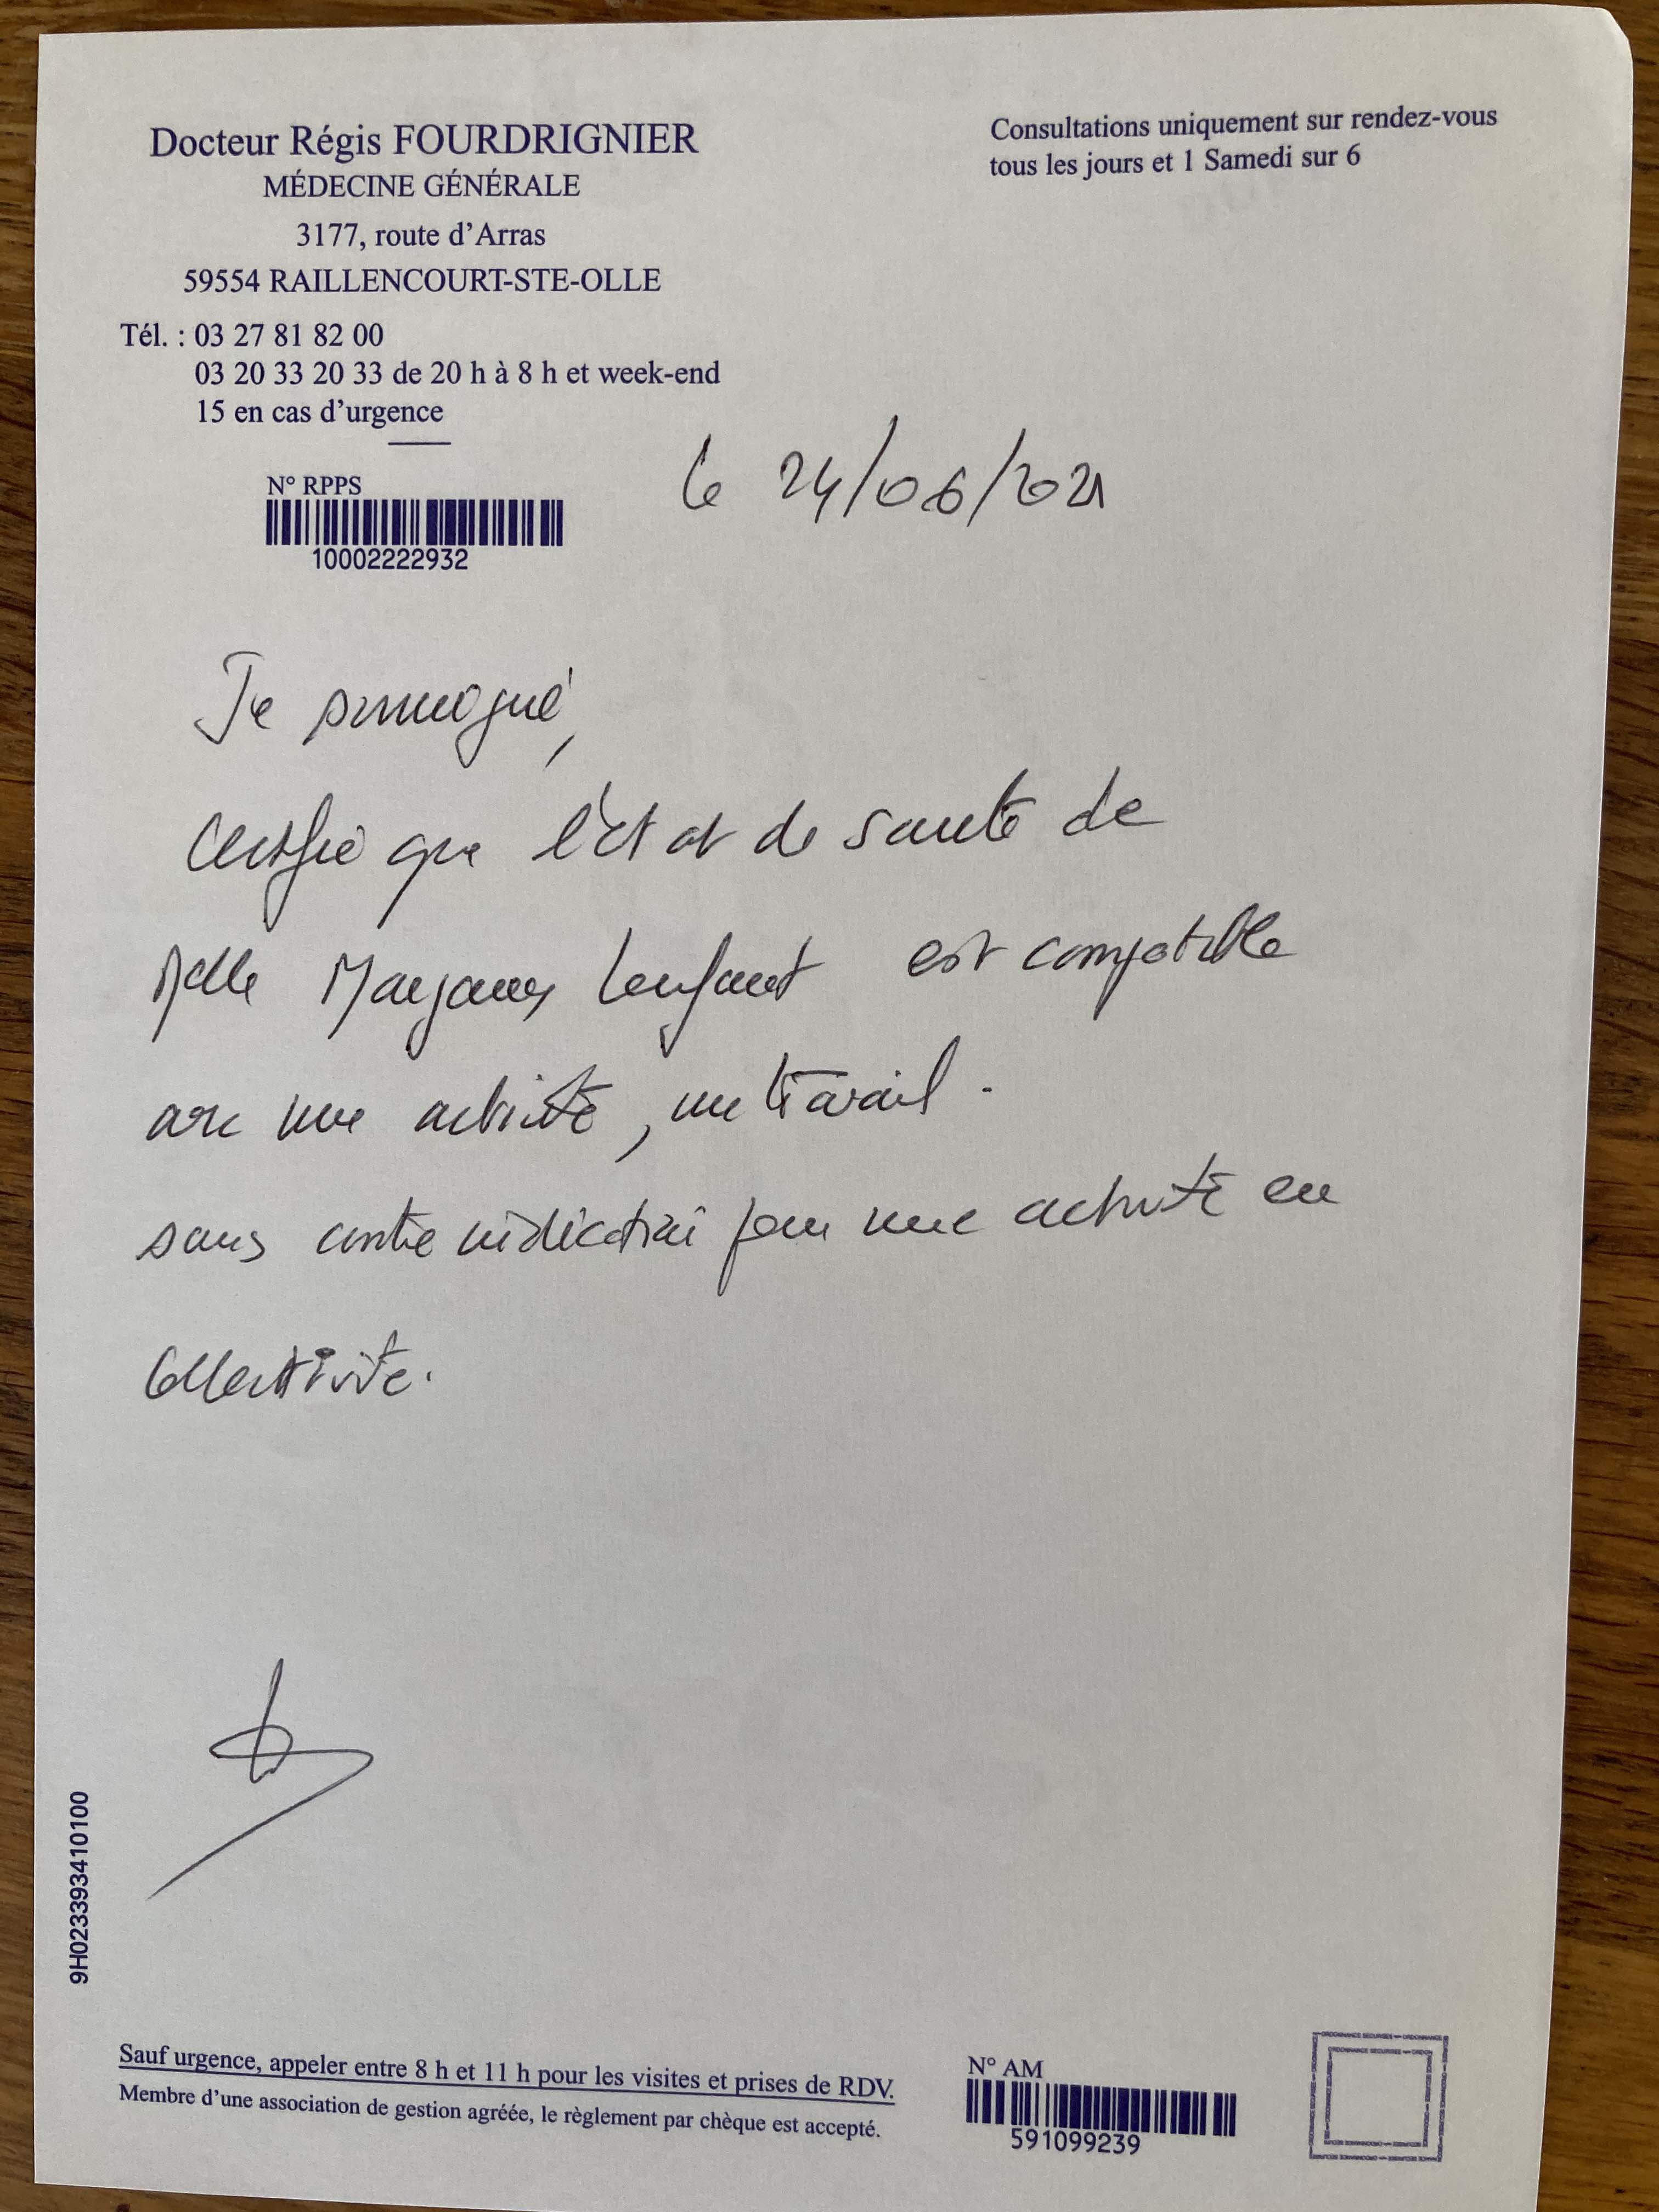 Docteur Régis FOURDRIGNIER
MÉDECINE GÉNÉRALE
3177, route d'Arras
59554 RAILLENCOURT-STE-OLLE
Tél. : 03 27 81 82 00
03 20 33 20 33 de 20 h à 8 h et week-end
15 en cas d'urgence
Consultations uniquement sur rendez-vous
tous les jours et 1 Samedi sur 6
N° RPPS
10002222932
le 24/06/2021
Je soussigné,
Certifie que l'état de santé de
Melle Lenfant est compatible
avec une activité, un travail.
sans contre indication pour une activité en
Collectivité.
9H02339341 0100
Sauf urgence, appeler entre 8 h et 11 h pour les visites et prises de RDV.
Membre d'une association de gestion agréée, le règlement par chèque est accepté.
N° AM
591099239